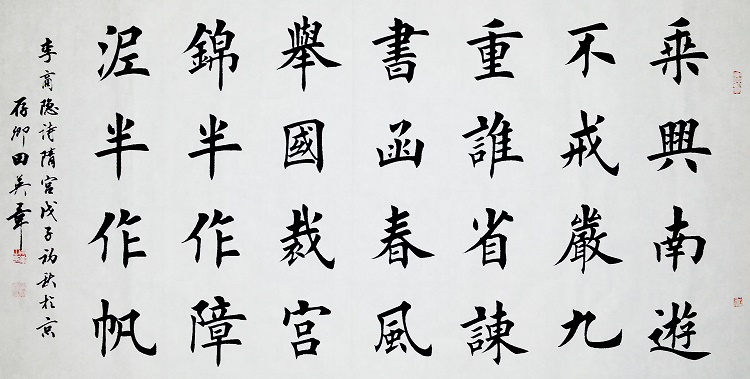 乘興南遊
不戒嚴九
重誰省諫
書函春風
舉國裁宮
錦半作障
泥半作帆
李商隐诗隋宫戊子初秋於京
存卿田英章